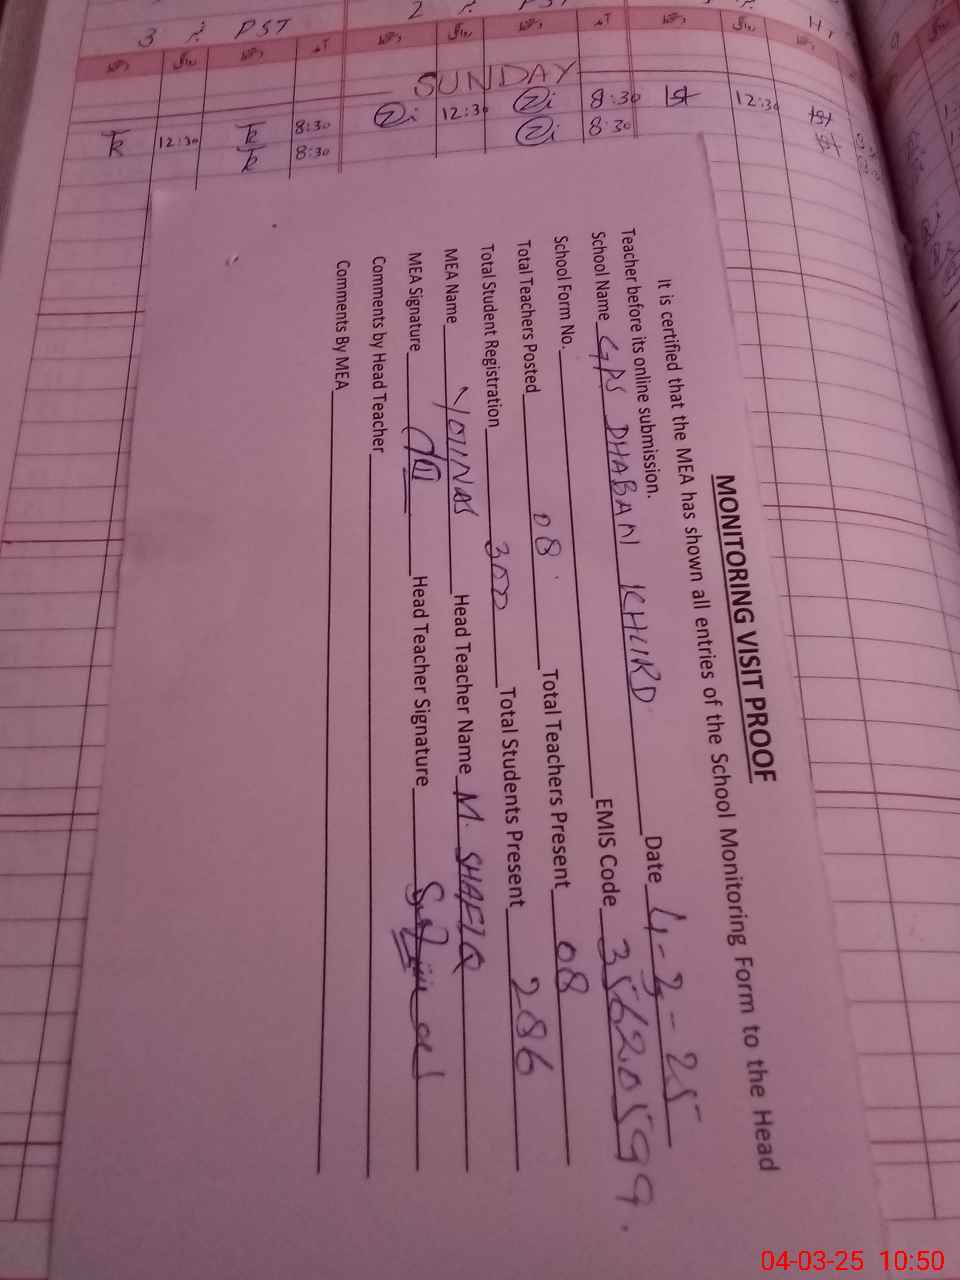 3 PST 2
SUNDAY
12:30 8:30 12:30 8:30 12:30
8:30 8:30
8:30
MONITORING VISIT PROOF
It is certified that the MEA has shown all entries of the School Monitoring Form to the Head
Teacher before its online submission.
School Name GPS DHABAN KHURD Date 4-3-25
School Form No. EMIS Code 35620599
Total Teachers Posted 08 Total Teachers Present 08
Total Student Registration 300 Total Students Present 286
MEA Name YOUNAS Head Teacher Name M. SHAFIQ
MEA Signature Head Teacher Signature
Comments by Head Teacher
Comments By MEA
04-03-25 10:50